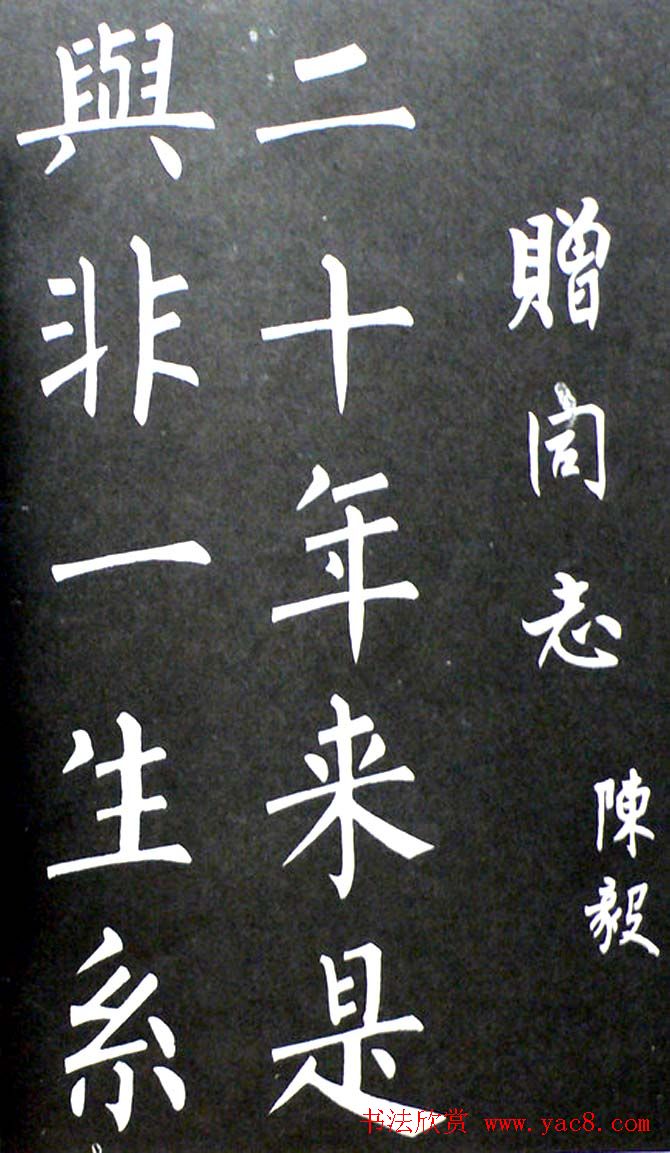 贈同志
陳毅
二十年来是
與非一生系
书法欣赏 www.yac8.com